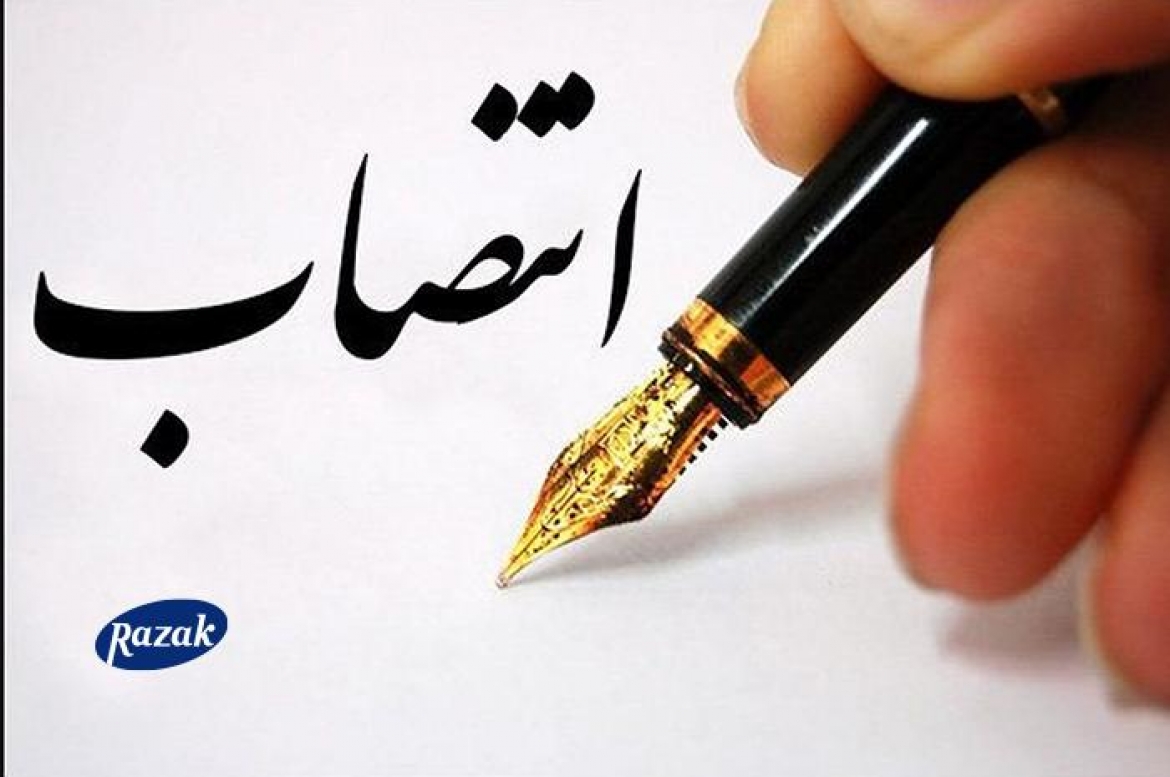 انتصاب
Razak